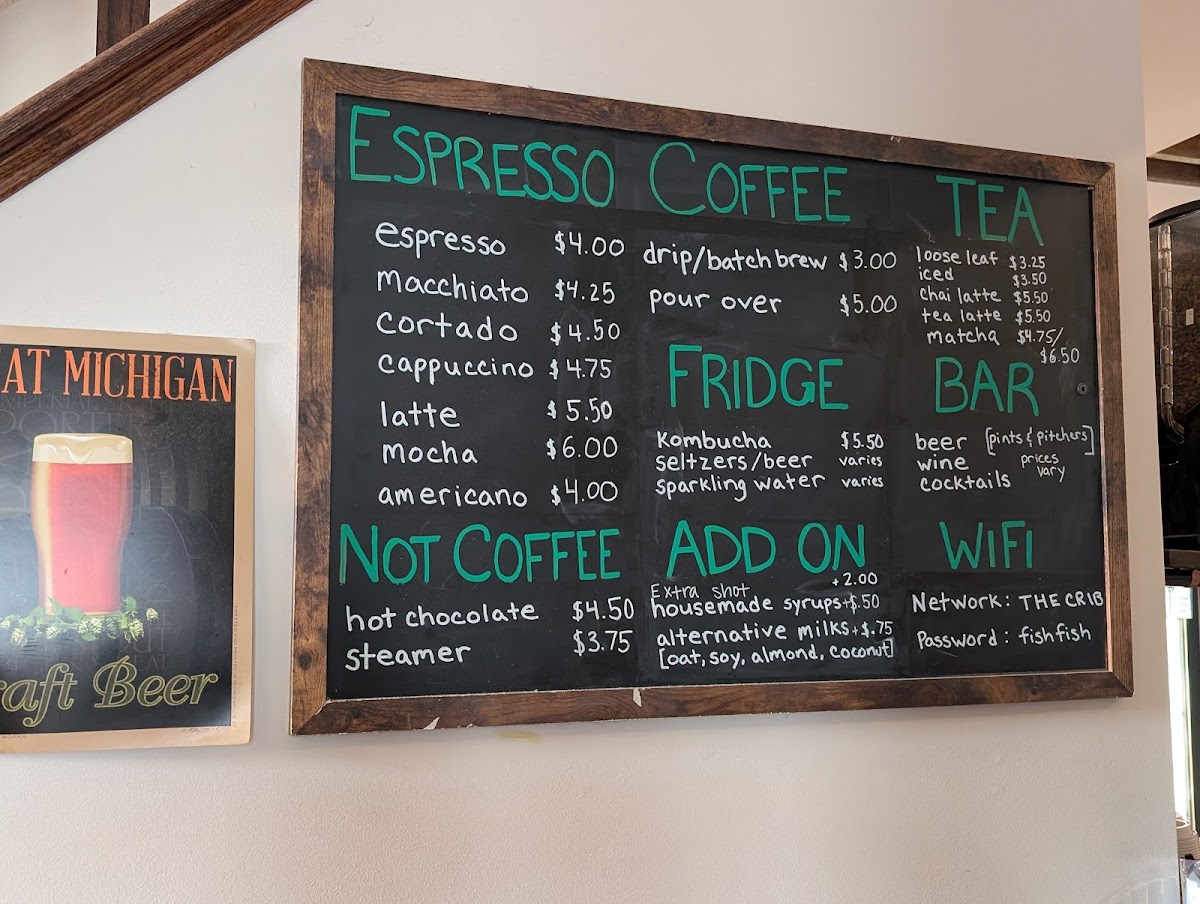 AT MICHIGAN
raft Beer
ESPRESSO
espresso $4.00
macchiato $4.25
cortado $4.50
cappuccino $4.75
latte $5.50
mocha $6.00
americano $4.00
NOT COFFEE
hot chocolate $4.50
steamer $3.75
COFFEE
drip/batch brew $3.00
pour over $5.00
FRIDGE
Kombucha $5.50
seltzers/beer varies
sparkling water varies
ADD ON
Extra shot +2.00
housemade syrups +$.50
alternative milks +$.75
[oat, soy, almond, coconut]
TEA
loose leaf $3.25
iced $3.50
chai latte $5.50
tea latte $5.50
matcha $4.75/
$6.50
BAR
beer [pints & pitchers]
wine prices
cocktails vary
WIFI
Network: THE CRIB
Password: fishfish